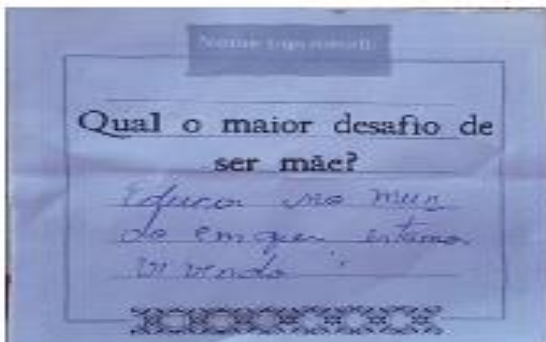 Nome (opcional):
Qual o maior desafio de
ser mãe?
Educar no mun
do em que estamos
vivendo